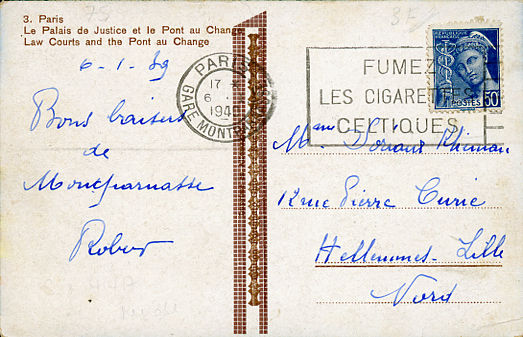 3. Paris
Le Palais de Justice et le Pont au Change
Law Courts and the Pont au Change
6-1-39
Bons baisers
de
Montparnasse
Robert
PARIS
17
6
194
GARE MONTPARNASSE
FUMEZ
LES CIGARETTES
CELTIQUES
POSTES
50
Mame
12 rue Pierre Curie
Hellemmes-Lille
Nord